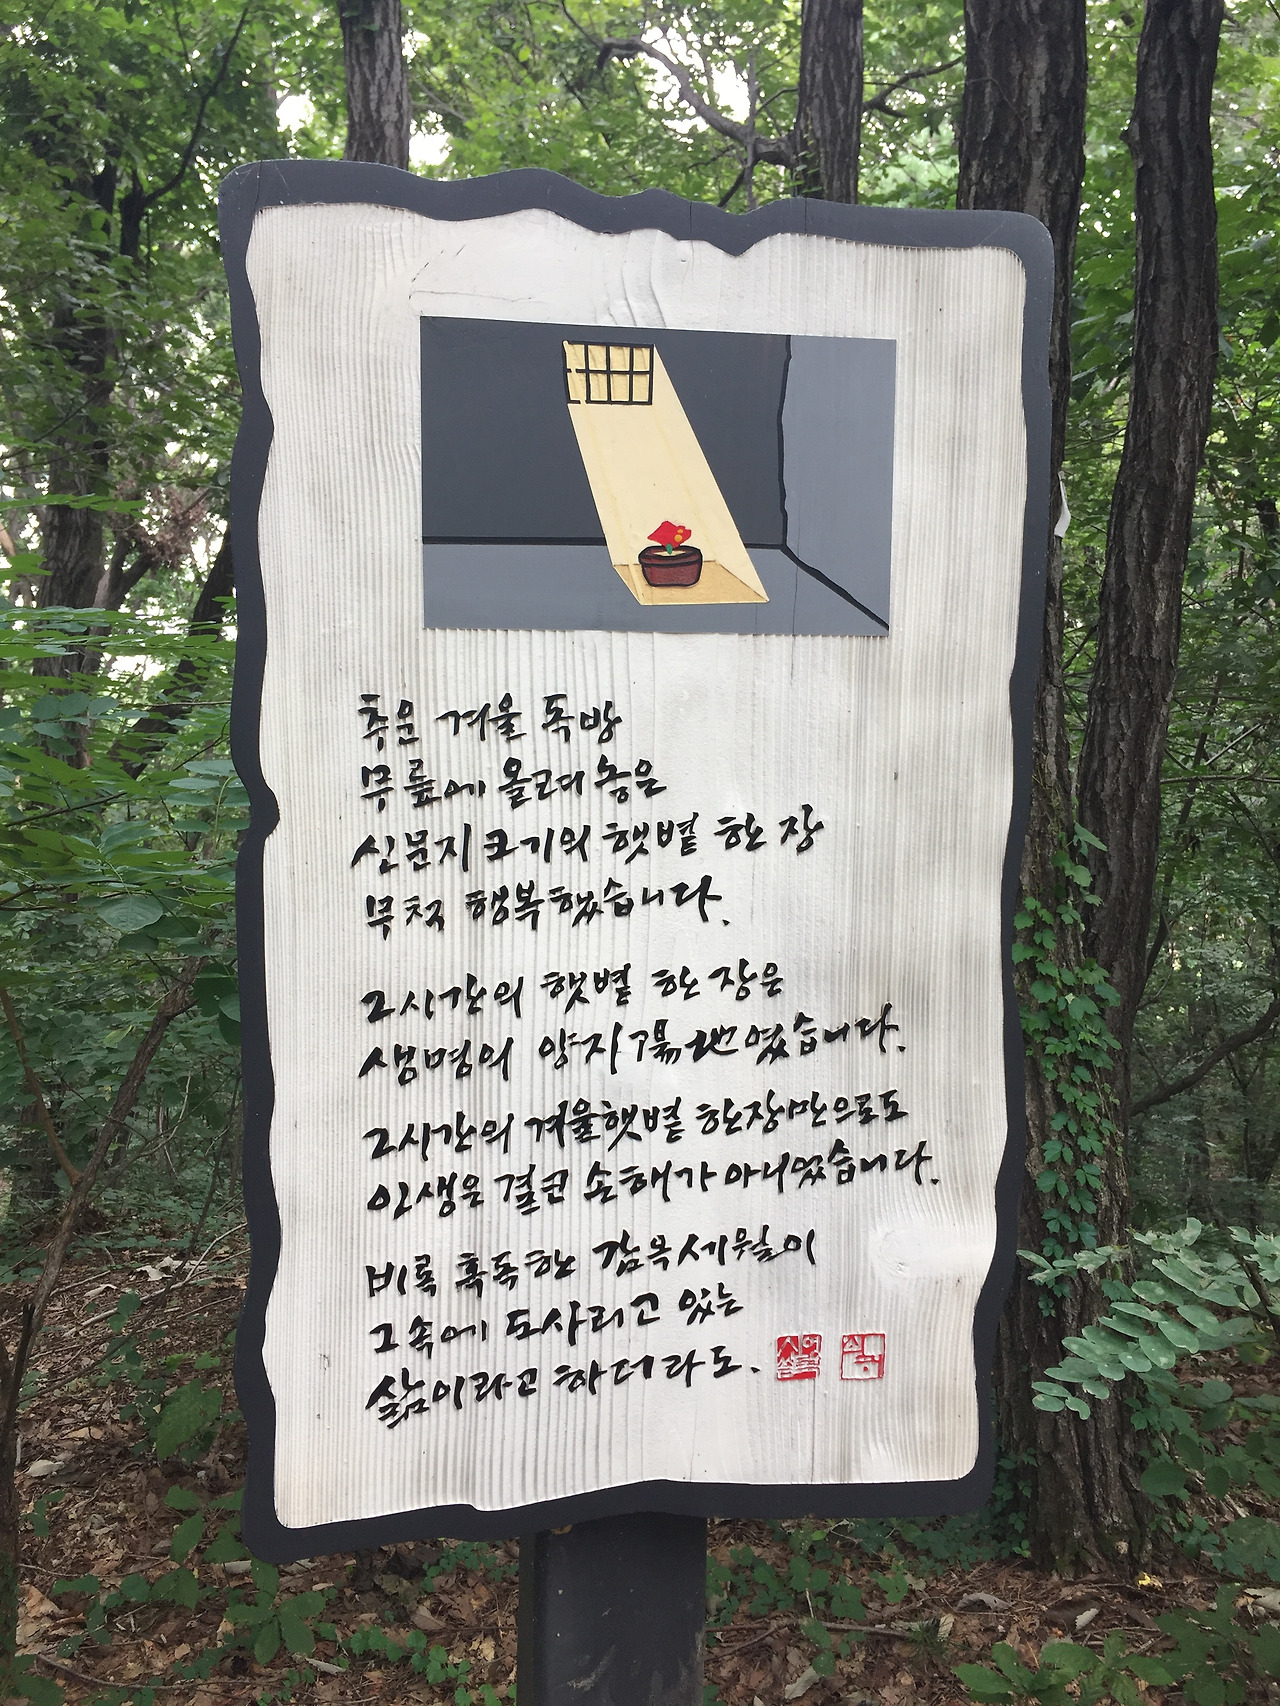 추운 겨울 독방
무릎에 올려 놓은
신문지 크기의 햇볕 한 장
무척 행복했습니다.
2시간의 햇볕 한 장은
생명의 양지陽地였습니다.
2시간의 겨울햇볕 한장만으로도
인생은 결코 손해가 아니었습니다.
비록 혹독한 감옥세월이
그속에 도사리고 있는
삶이라고 하더라도.